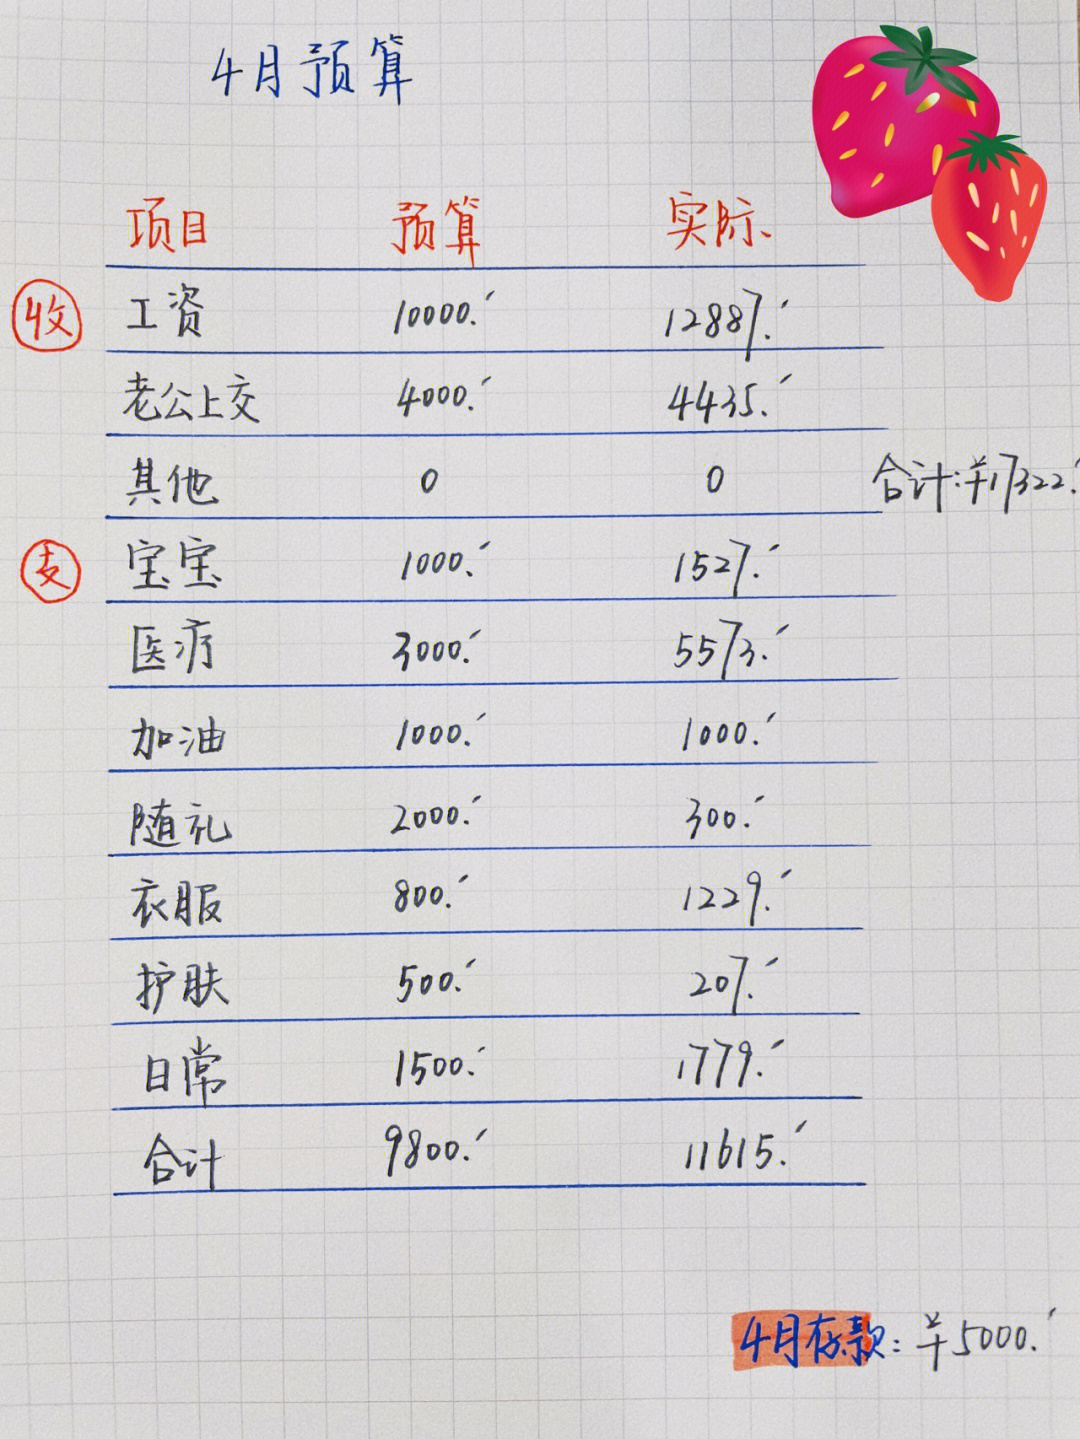 4月预算
项目 预算 实际
收 工资 10000.- 12887.-
老公上交 4000.- 4435.-
其他 0 0 合计:¥17322.-
支 宝宝 1000.- 1527.-
医疗 3000.- 5573.-
加油 1000.- 1000.-
随礼 2000.- 300.-
衣服 800.- 1229.-
护肤 500.- 207.-
日常 1500.- 1779.-
合计 9800.- 11615.-
4月存款:¥5000.-